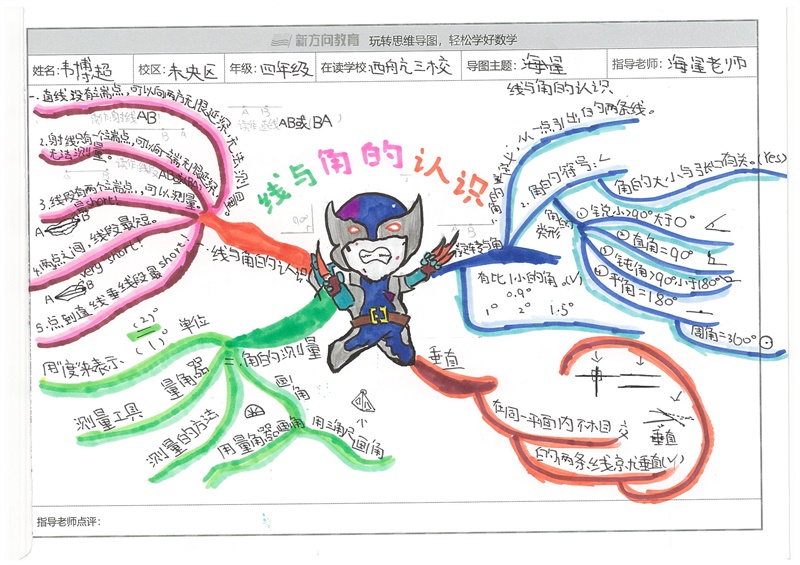 新方向教育 玩转思维导图，轻松学好数学
姓名: 韦博超 校区: 未央区 年级: 四年级 在读学校: 西航三校 导图主题: 海星 指导老师: 海星老师
线与角的认识
线与角的认识
一.直线没有端点,可以向两方无限延深,无法测量。
AB或(BA)
2.射线只有一个端点,可以向一端无限延深,
无法测量。
AB
3.线段有两个端点,可以测量。
AB或(BA)
short!
A B
4.两点之间,线段最短。
very short!
A B
5.点到直线垂线段最short!
一.线与角的认识
二.角的测量
(2)°
(1)°
单位
用"度"来表示.
量角器
测量工具
测量的方法
画角
用量角器画角
用三角尺画角
从一点引出,的两条线。
2.角的符号:∠
角的大小与张长有关。(Yes)
角的类形
①锐小>90°大于0°
②直角=90°
③钝角>90°小于180°
④平角=180°
周角=360°
旋转与角
有比1小的角.(√)
0.9°
1° 2° 1.5°
垂直
在同一平面内不木目交
的两条线京尤垂直(√)
垂直
指导老师点评: